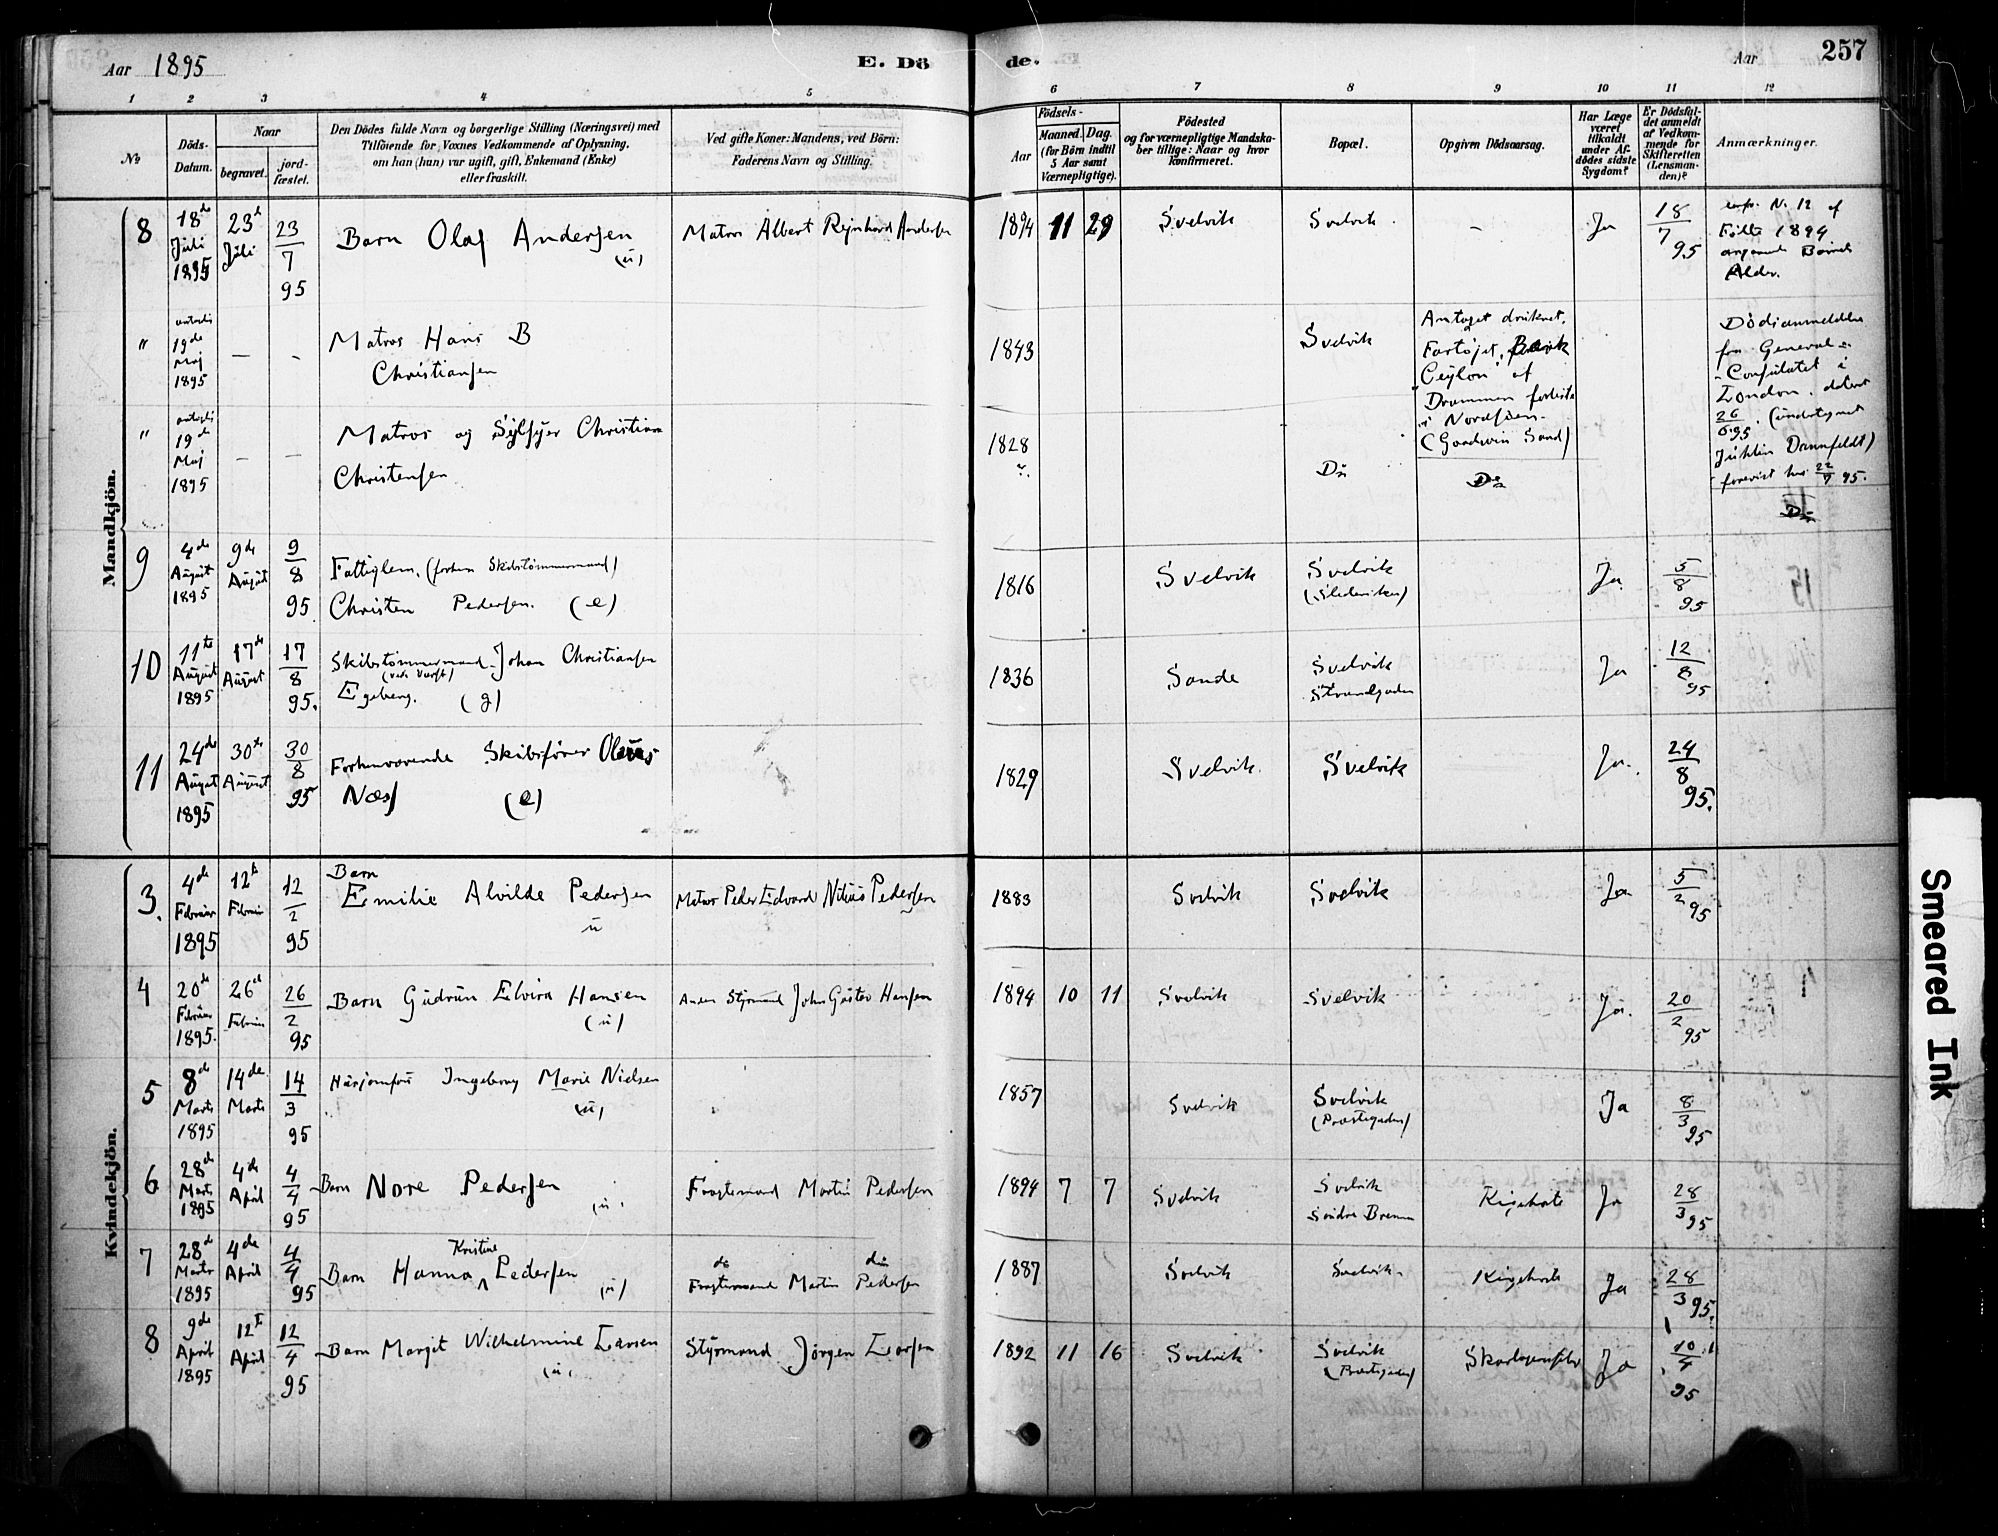 Aar 1895
E. Dö
de.
Aar
257
1 2 3 4 5 6 7 8 9 10 11 12
No
Döds-
Datum.
Naar
begravet.
jord-
fæstet.
Den Dödes fulde Navn og borgerlige Stilling (Næringsvei) med
Tilföiende for Voxnes Vedkommende af Oplysning,
om han (hun) var ugift, gift, Enkemand (Enke)
eller fraskilt.
Ved gifte Koner: Mandens, ved Börn:
Faderens Navn og Stilling.
Födsels-
Aar
Maaned. Dag.
(for Börn indtil
5 Aar samt
Værnepligtige).
Födested
og for værnepligtige Mandska-
ber tillige: Naar og hvor
konfirmeret.
Bopæl.
Opgiven Dödsaarsag.
Har Læge
været
tilkaldt
under Af-
dödes sidste
Sygdom?
Er Dödsfal-
det anmeldt
af Vedkom-
mende for
Skifteretten
(Lensman-
den)?
Anmærkninger.
Mandkjön.
8
18de
Juli
1895
23d
Juli
23
7
95
Barn Olaf Andersen
(u)
Matros Albert Rejnhard Andersen
1894 11 29
Svelvik
Svelvik
-
Ja
18
7 95
No 12 af
1894
Barnets
Alder.
"
19de
Maj
1895
- -
Matros Hans B
Christiansen
1843
Svelvik
Antaget druknet.
Fartøjet
Ceylon af
Drammen forliste
i Nordsøen
(Goodwin Sand)
Dødsanmeldelse
fra General-
Consulatet i
London. dateret
26
6 95. (undertegnet
Juhlin Dannfeldt)
forevist her 22/7 95.
"
19de
Maj
1895
- -
Matros og Christian
Christensen
1828
Do
Do
Do
9
4de
August
1895
9de
August
9
8
95
Fattiglem. (forhen Skibstømmermand)
Christen Pedersen. (e)
1816
Svelvik
Svelvik
Ja.
5
8
95
10
11te
August
1895
17de
August
17
8
95.
Skibstømmermand Johan Christiansen
(ved Værft)
Egeberg. (g)
1836
Sande
Svelvik
Strandgaden
Ja
12
8
95
11
24de
August
1895
30te
August
30
8
95
Forhenværende Skibsfører Olaus
Næss (e)
1829
Svelvik.
Svelvik
Ja.
24
8
95.
Kvindekjön.
3.
4de
Februar
1895
12te
Februar
12
2
95
Barn
Emilie Alvilde Pedersen
u
Matros Peder Edvard Nilius Pedersen
1883
Svelvik
Svelvik
Ja
5
2 95
4
20de
Februar
1895.
26de
Februar
26
2
95
Barn Gudrun Elvira Hansen
(u)
Anden Styrmand John Gustav Hansen
1894 10 11
Svelvik
Svelvik
Ja.
20
2 95
5
8de
Marts
1895
14de
Marts
14
3
95
Husjomfru Ingeborg Marie Nielsen
(u)
1857
Svelvik
Svelvik
(Præstegaden)
Ja
8
3 95
6
28de
Marts
1895
4de
April
4
4
95
Barn Nore Pedersen
(u)
Fragtemand Martin Pedersen
1894 7 7
Svelvik
Svelvik
Søndre Brenna
Kighoste
Ja
28
3 95
7
28de
Marts
1895
4de
April
4
4
95
Kristine
Barn Hanna ^ Pedersen
(u)
do do
Fragtemand Martin Pedersen
1887
Svelvik
Svelvik
Kighoste
Ja
28
3 95.
8
9de
April
1895
12te
April
12
4
95
Barn Margit Wilhelmine Larsen
(u)
Styrmand Jørgen Larsen
1892 11 16
Svelvik
Svelvik
(Prestegaden)
Skarlagensfeber
Ja
10
4
95
Smeared Ink